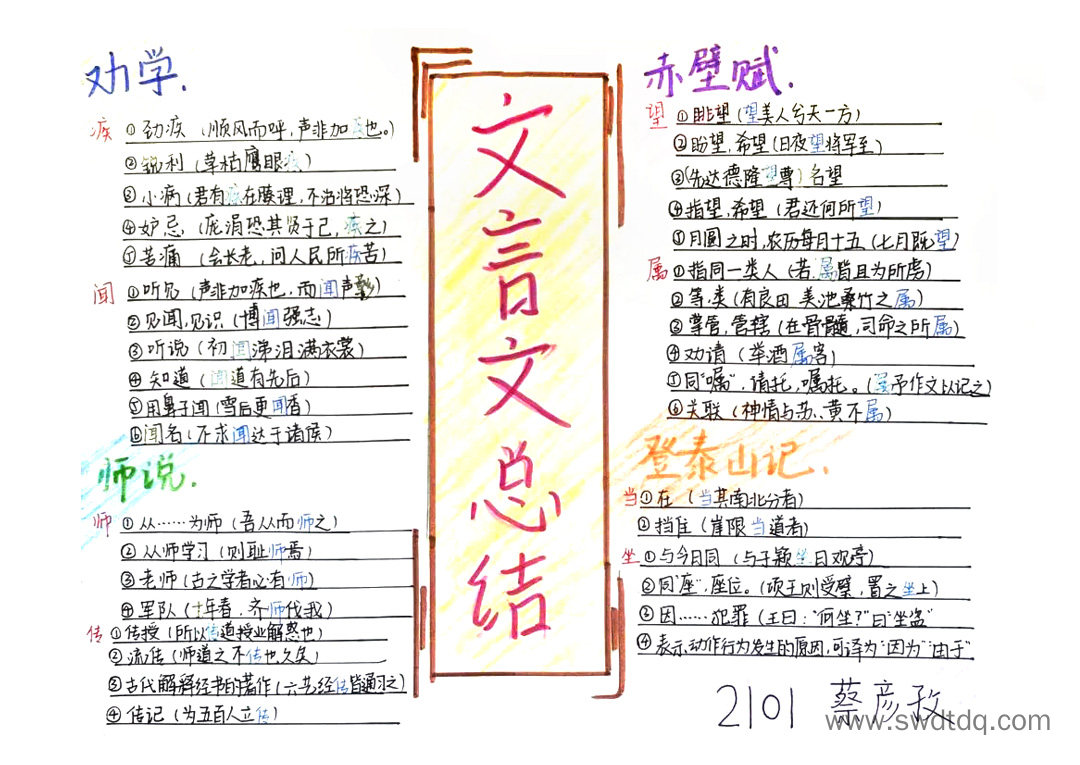 劝学.
疾 ①劲疾 (顺风而呼,声非加疾也。)
②锐利 (草枯鹰眼疾)
③小病 (君有疾在腠理,不治将恐深)
④妒忌 (庞涓恐其贤于己,疾之)
⑤苦痛 (会长老,问人民所疾苦)
闻 ①听见 (声非加疾也,而闻声彰)
②见闻,见识 (博闻强志)
③听说 (初闻涕泪满衣裳)
④知道 (闻道有先后)
⑤用鼻子闻 (雪后更闻香)
⑥闻名 (不求闻达于诸侯)
师说.
师 ①从……为师 (吾从而师之)
②从师学习 (则耻师焉)
③老师 (古之学者必有师)
④军队 (十年春,齐师伐我)
传 ①传授 (所以传道授业解惑也)
②流传 (师道之不传也久矣)
③古代解释经书的著作 (六艺经传皆通习之)
④传记 (为五百人立传)
文言文总结
赤壁赋.
望 ①眺望 (望美人兮天一方)
②盼望,希望 (日夜望将军至)
③(先达德隆望尊) 名望
④指望,希望 (君还何所望)
⑤月圆之时,农历每月十五 (七月既望)
属 ①指同一类人 (若属皆且为所虏)
②等,类 (有良田 美池桑竹之属)
③掌管,管辖 (在骨髓,司命之所属)
④劝请 (举酒属客)
⑤同“嘱”,请托,嘱托。(属予作文以记之)
⑥关联 (神情与苏、黄不属)
登泰山记.
当 ①在 (当其南北分者)
②挡住 (崖限当道者)
坐 ①与今日同 (与子颍坐日观亭)
②同“座”,座位。(项王则受璧,置之坐上)
③因……犯罪 (王曰:“何坐?”曰“坐盗”
④表示动作行为发生的原因,可译为“因为”“由于”
2101 蔡彦孜
www.swdtdq.com